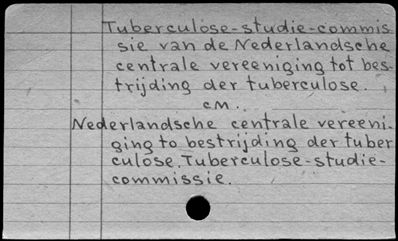 Tuberculose-studie-commis
sie van de Nederlandsche
centrale vereeniging tot bes-
trijding der tuberculose.
cM..
Nederlandsche centrale vereeni-
ging to bestrijding der tuber
culose. Tuberculose-studie-
commissie.